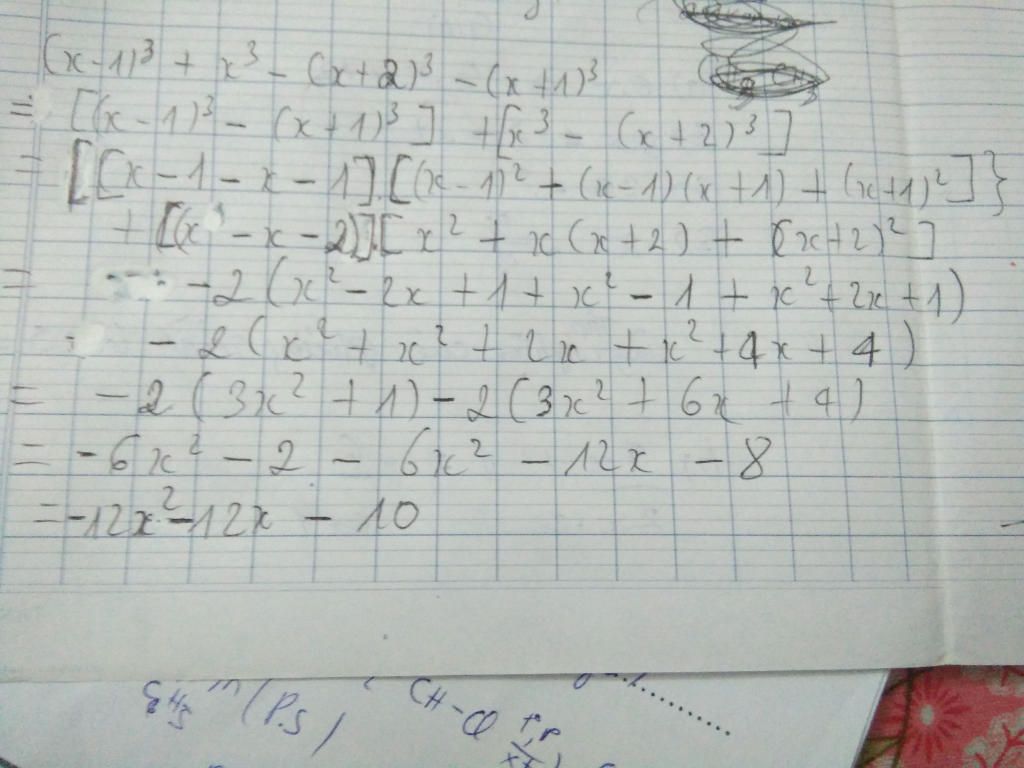 (x-1)³ + x³ - (x+2)³ - (x+1)³
= [(x-1)³ - (x+1)³] + [x³ - (x+2)³]
= [[x-1-x-1].[(x-1)² + (x-1)(x+1) + (x+1)²]}
+ [(x - x - 2)].[x² + x(x+2) + (x+2)²]
= -2(x² - 2x + 1 + x² - 1 + x² + 2x + 1)
- 2(x² + x² + 2x + x² + 4x + 4)
= -2(3x² + 1) - 2(3x² + 6x + 4)
= -6x² - 2 - 6x² - 12x - 8
= -12x² - 12x - 10
(P.S)
CH-